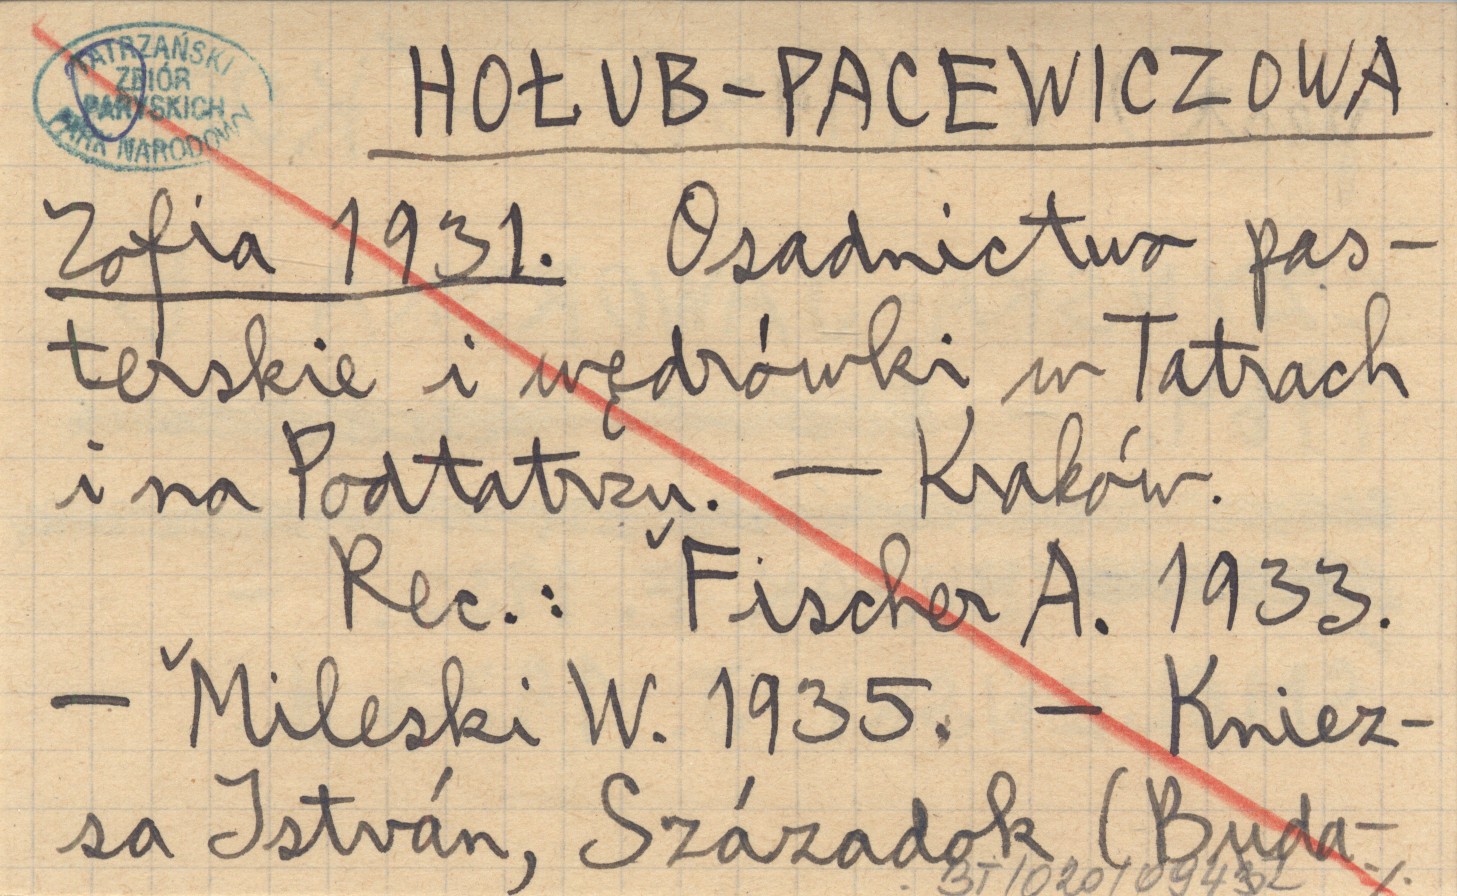 TATRZAŃSKI
ZBIÓR
PARYSKICH
PARK NARODOWY
HOŁUB-PACEWICZOWA
Zofia 1931. Osadnictwo pas-
terskie i wędrówki w Tatrach
i na Podtatrzu. — Kraków.
Rec.: ˇFischer A. 1933.
— ˇMileski W. 1935. — Kniez-
sa István, Századok (Buda-